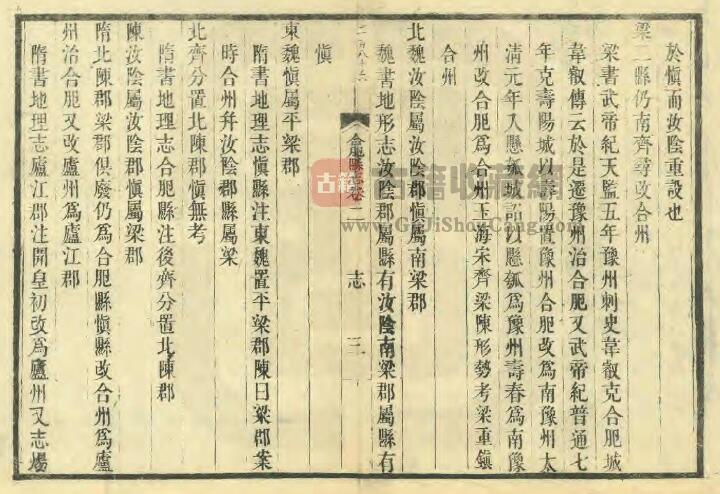 於愼而汝陰重設也
梁二縣仍南齊尋改合州
梁書武帝紀天監五年豫州刺史韋叡克合肥城
韋叡傳云於是遷豫州治合肥又武帝紀普通七
年克壽陽城以壽陽置豫州合肥改爲南豫州太
清元年入懸瓠城詔以懸瓠爲豫州壽春爲南豫
州改合肥爲合州玉海宋齊梁陳形勢考梁重鎭
合州
北魏汝陰屬汝陰郡愼屬南梁郡
魏書地形志汝陰郡屬縣有汝陰南梁郡屬縣有
合肥縣志卷二 志 三
愼
東魏愼屬平梁郡
隋書地理志愼縣注東魏置平梁郡陳曰梁郡案
時合州幷汝陰郡縣屬梁
北齊分置北陳郡愼無考
隋書地理志合肥縣注後齊分置北陳郡
陳汝陰屬汝陰郡愼屬梁郡
隋北陳郡梁郡俱廢仍爲合肥縣愼縣改合州爲廬
州治合肥又改廬州爲廬江郡
隋書地理志廬江郡注開皇初改爲廬州又志煬
古籍
古籍收藏網
www.GuJiShouCang.com